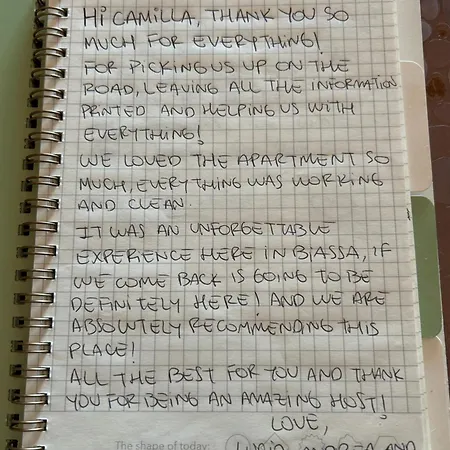 HI CAMILLA, THANK YOU SO
MUCH FOR EVERYTHING!
FOR PICKING US UP ON THE
ROAD, LEAVING ALL THE INFORMATION
PRINTED AND HELPING US WITH
EVERYTHING!
WE LOVED THE APARTMENT SO
MUCH, EVERYTHING WAS WORKING
AND CLEAN.
IT WAS AN UNFORGETTABLE
EXPERIENCE HERE IN BIASSA, IF
WE COME BACK IS GOING TO BE
DEFINITELY HERE! AND WE ARE
ABSOLUTELY RECOMMENDING THIS
PLACE!
ALL THE BEST FOR YOU AND THANK
YOU FOR BEING AN AMAZING HOST!
LOVE,
The shape of today:
AND